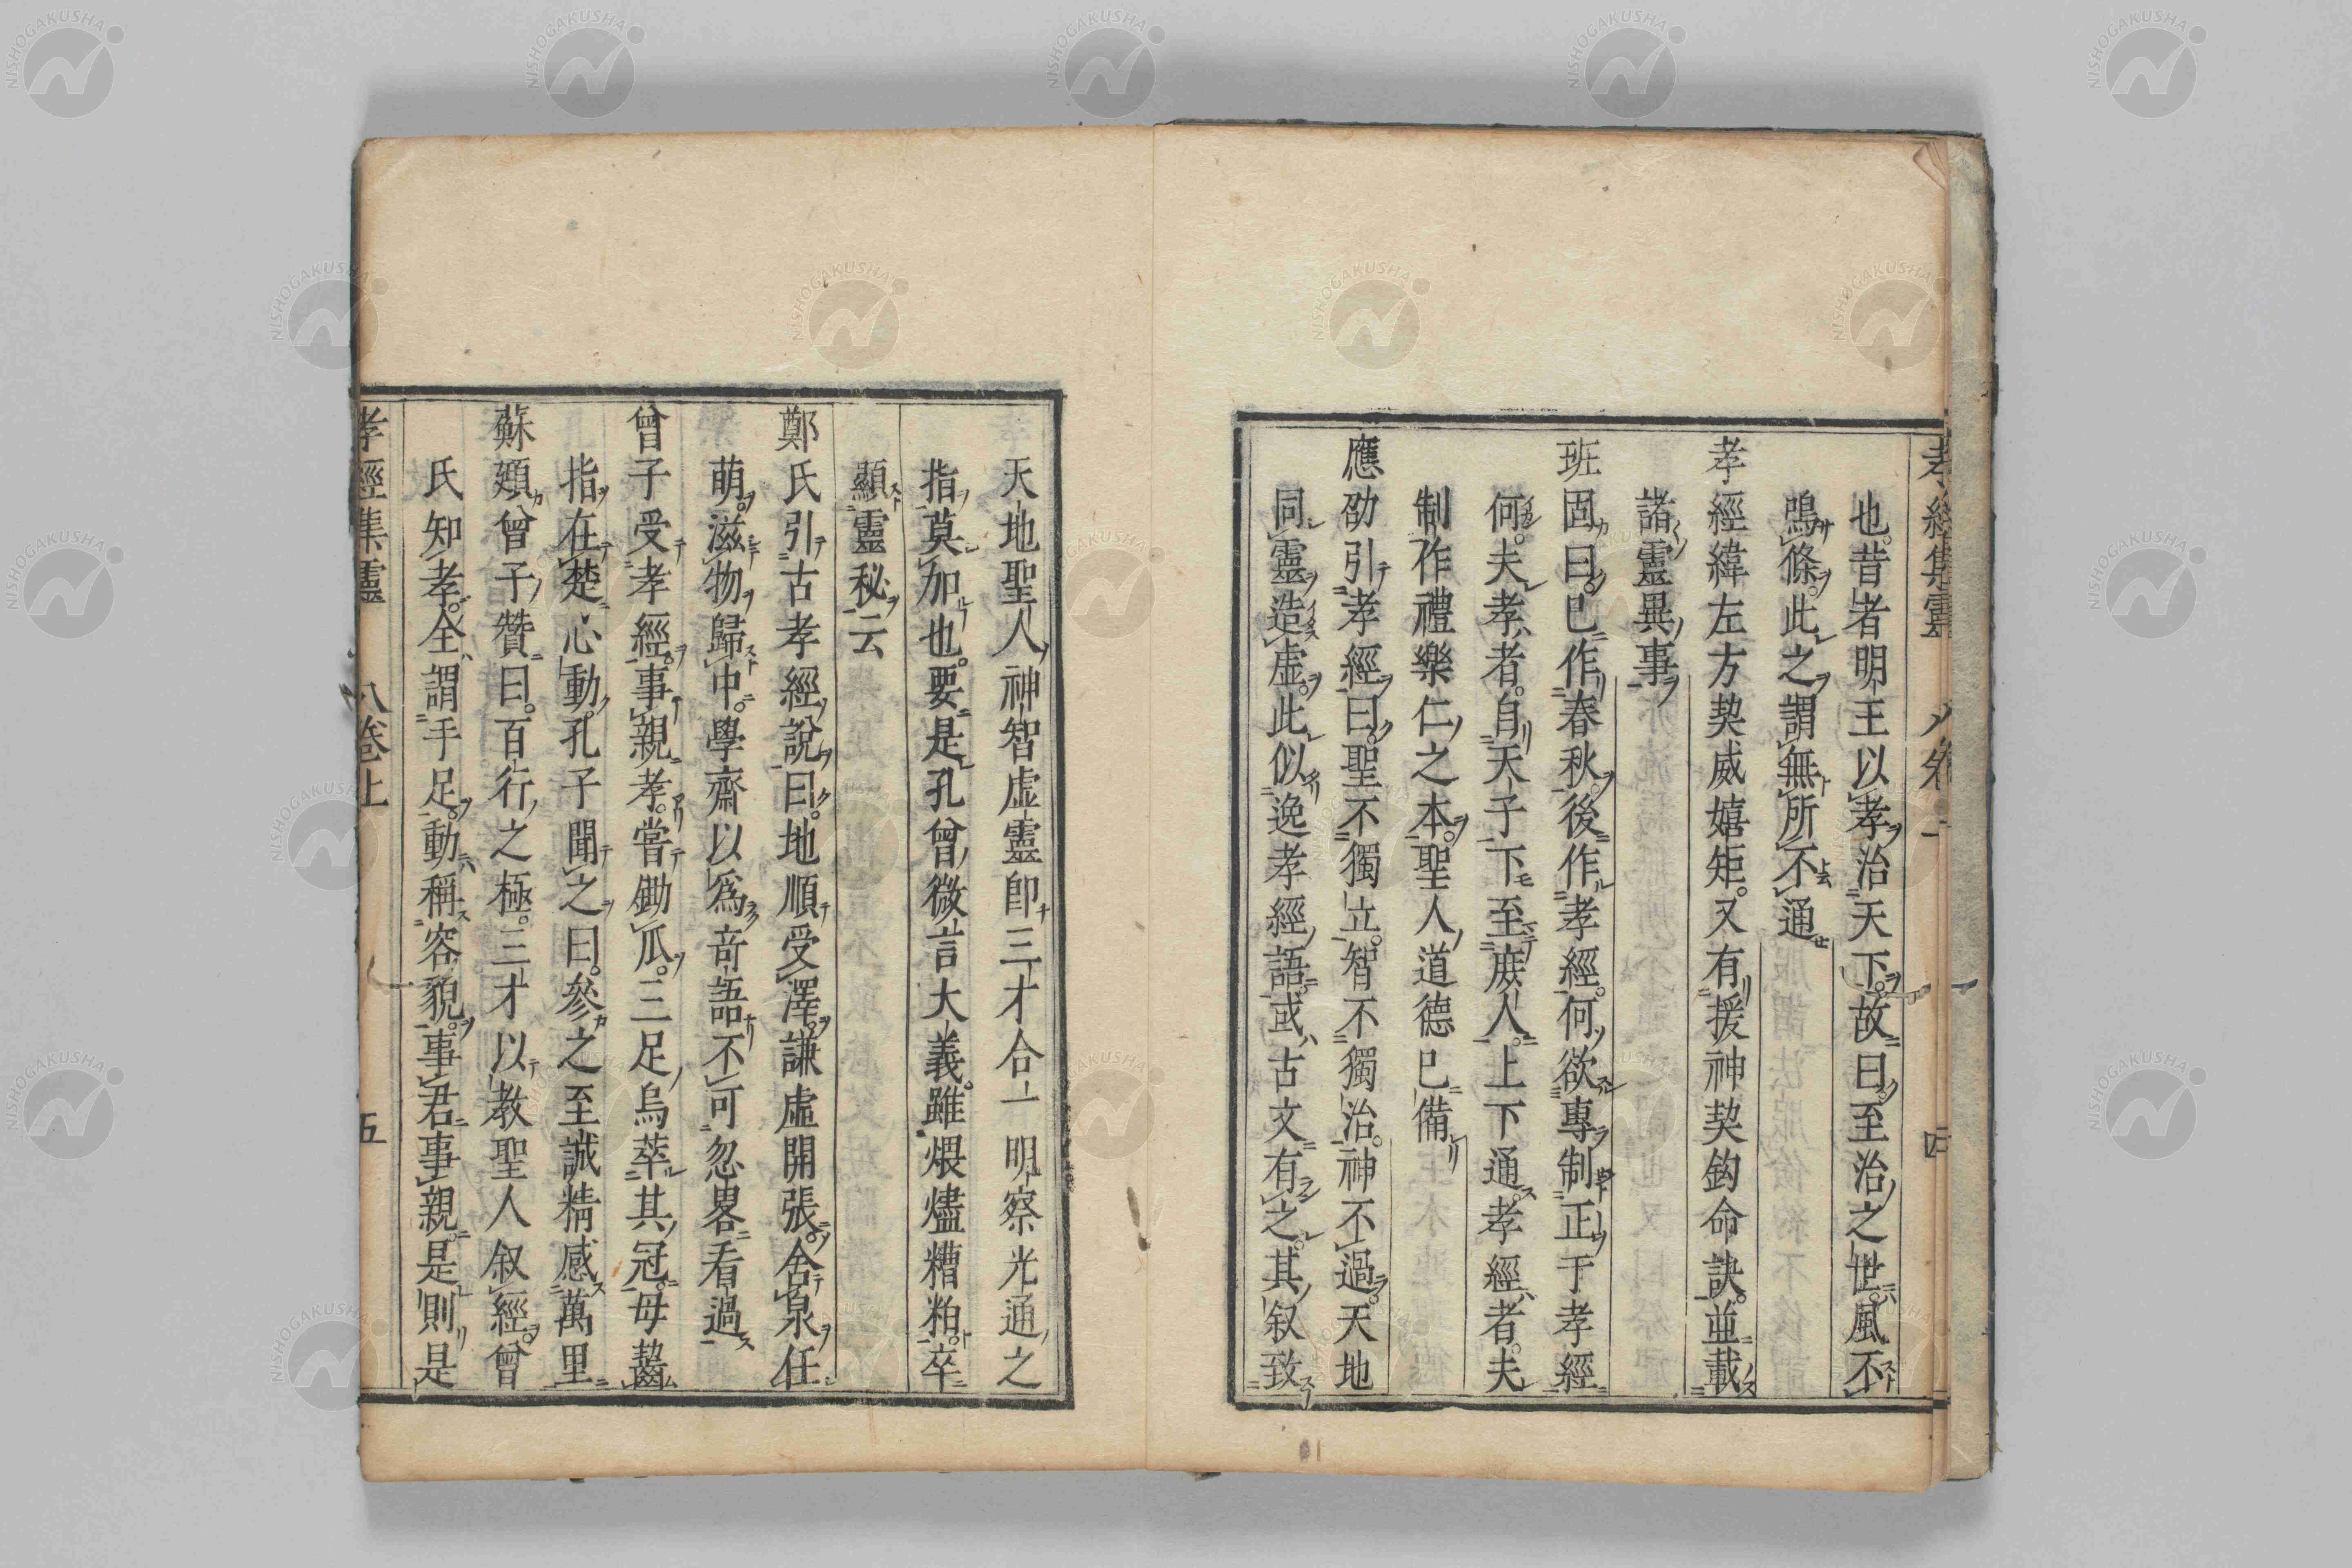 孝經集靈
也。昔者明王以孝治天下。故曰至治之世。風不
鳴條。此之謂無所不通
孝經緯左方契威嬉矩。又有援神契鈎命訣。並載
諸靈異事
班固曰。已作春秋。後作孝經。何欲專制正于孝經
何。夫孝者。自天子下至庶人。上下通。孝經者。夫
制作禮樂仁之本。聖人道德已備
應劭引孝經曰。聖不獨立。智不獨治。神不過天地
同靈造虛。此似逸孝經語。或古文有之。其叙致
天地聖人神智虛靈卽三才合一明察光通之
指。莫加也。要是孔曾微言大義。雖煨燼糟粕。卒
顯靈秘云
鄭氏引古孝經說曰。地順受澤。謙虛開張。舍泉任
萌。滋物歸中。學齋以爲奇語不可忽畧看過
曾子受孝經。事親孝。嘗鋤瓜。三足烏萃其冠。母齧
指。在楚心動。孔子聞之曰。參之至誠精感萬里
蘇頲曾子贊曰。百行之極。三才以教聖人叙經。曾
氏知孝。全謂手足。動稱容貌。事君事親。是則是
孝經集靈 卷上 五